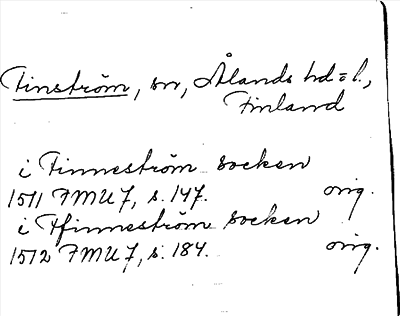 Finström, sn, Ålands hd=l.,
Finland
i Finneström socken
1511 FMU 7, s. 147. orig.
i Ffinneström socken
1512 FMU 7, s. 184. orig.